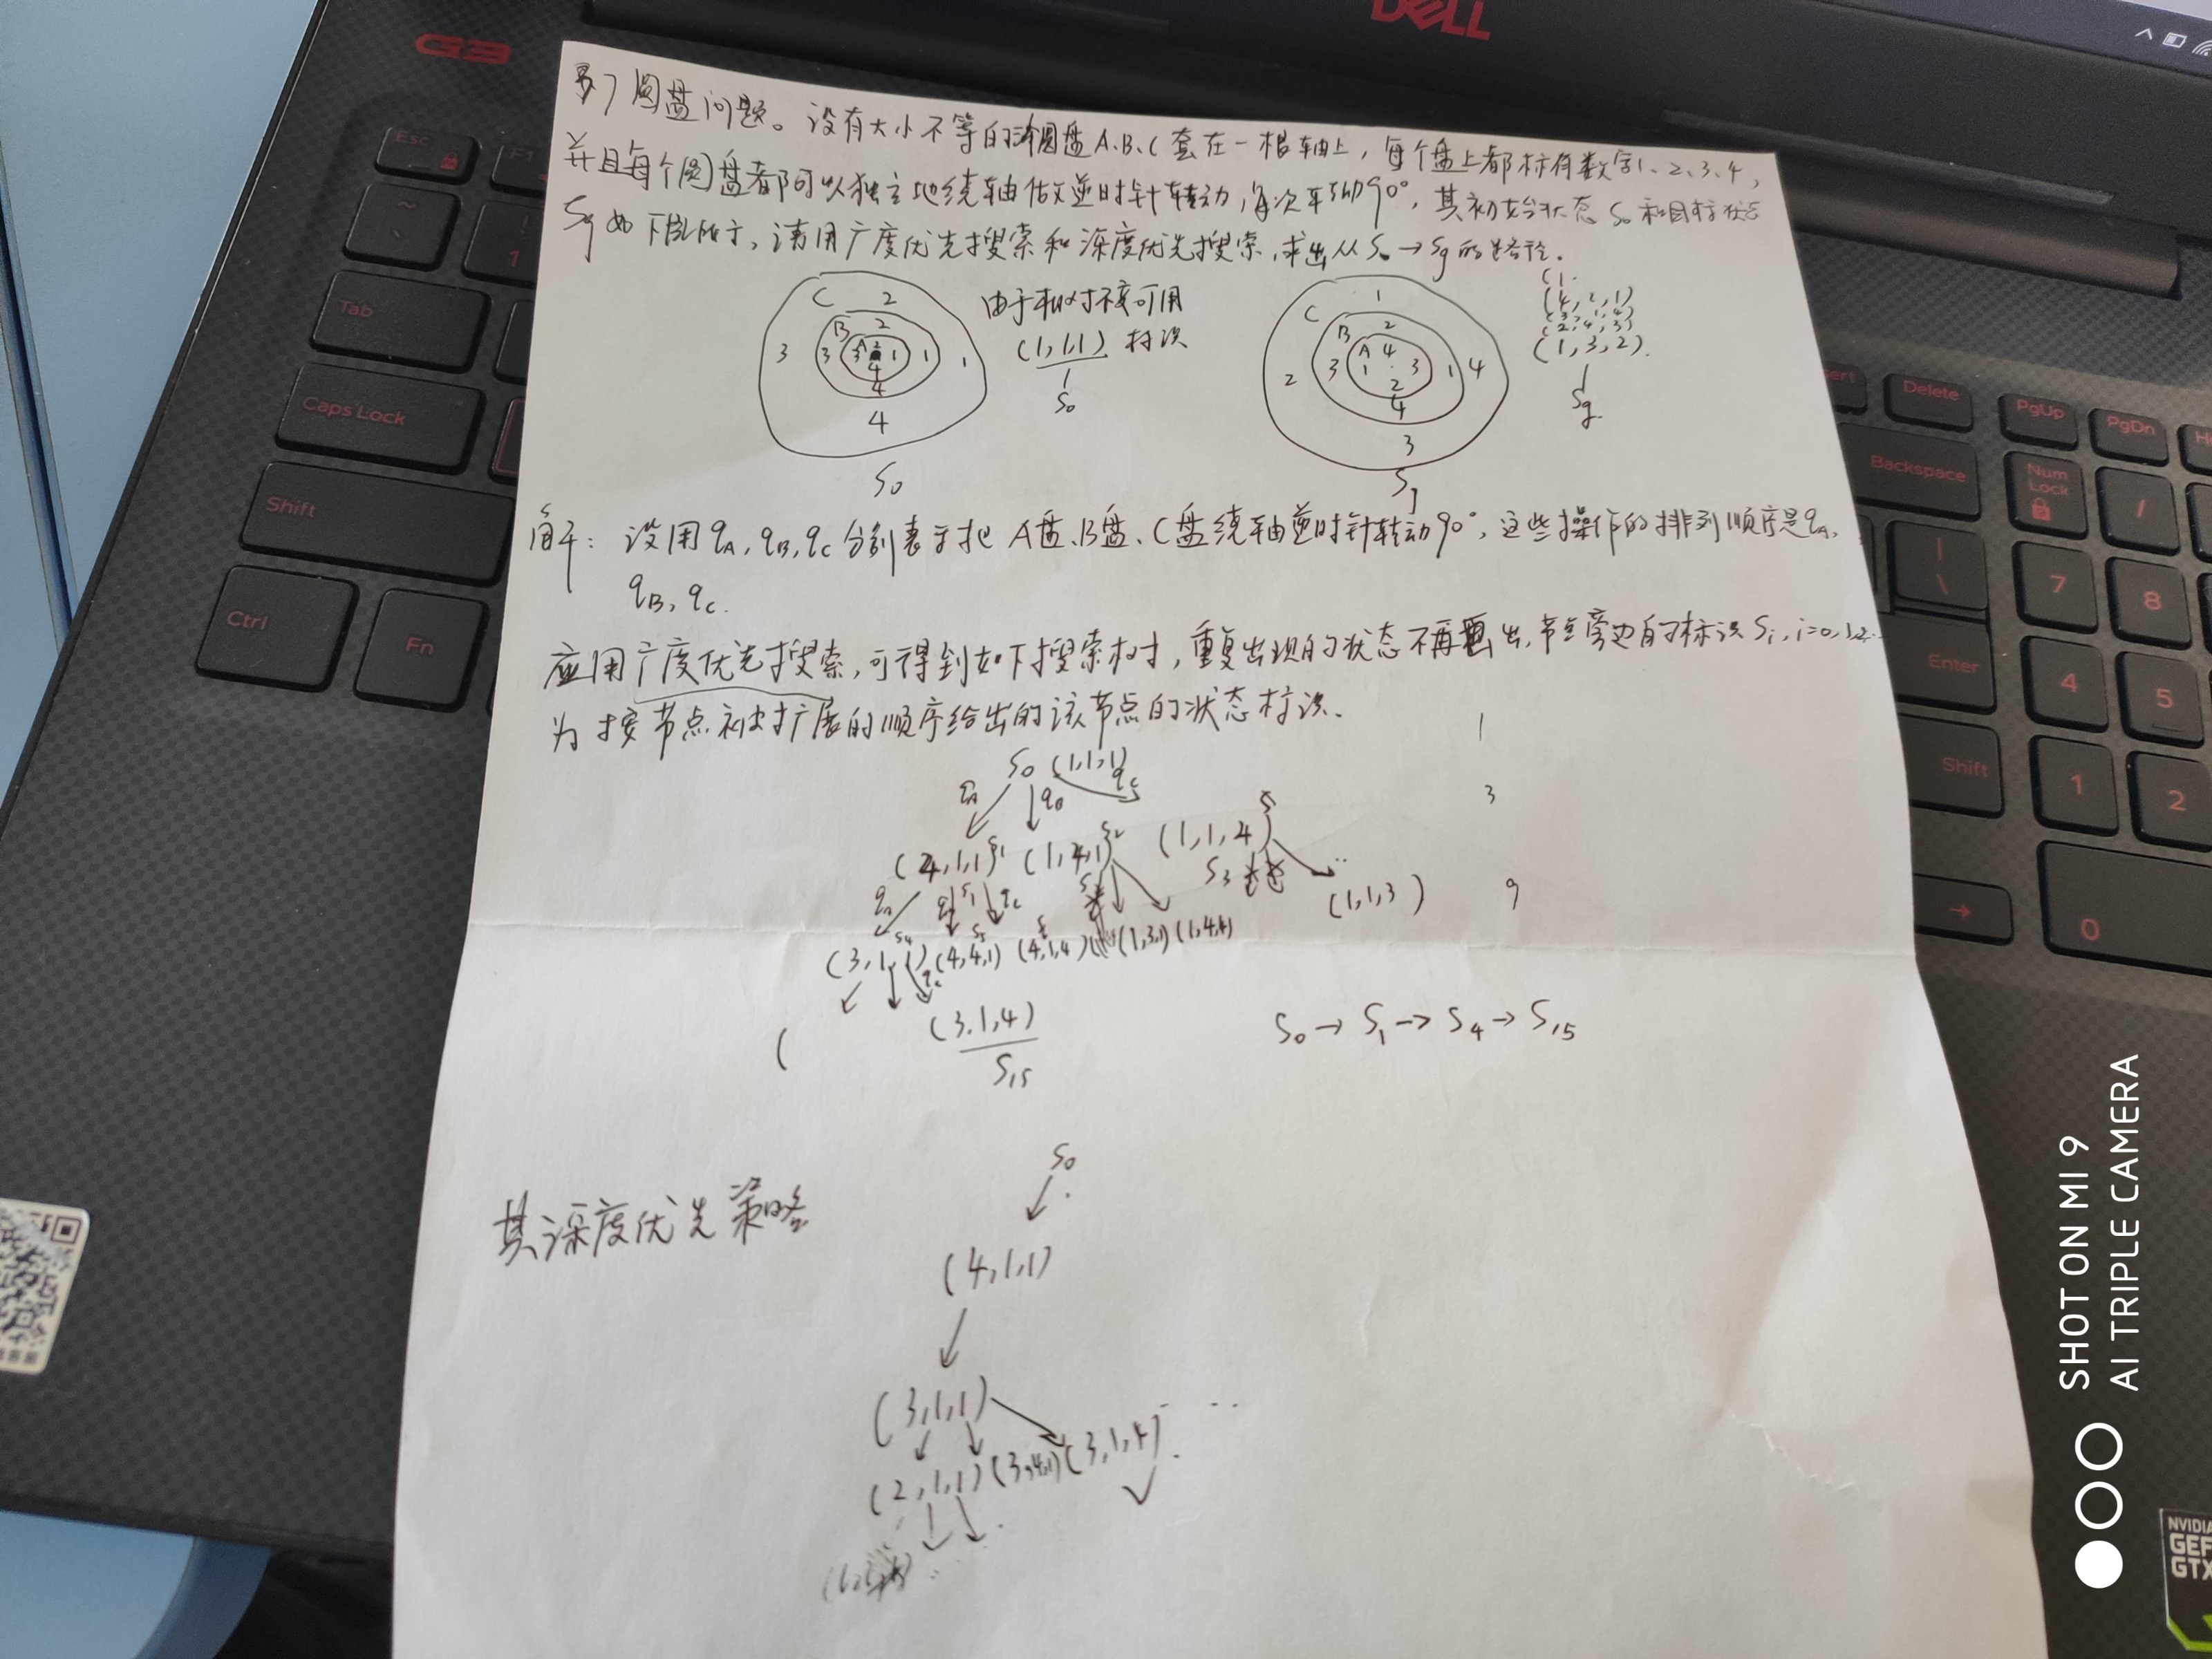 DELL
G3
圆盘问题。设有大小不等的圆盘A、B、C套在一根轴上，每个盘上都标有数字1、2、3、4，
并且每个圆盘都可以独立地绕轴做逆时针转动，每次转动90°，其初始状态S₀和目标状态
Sg如下图所示，请用广度优先搜索和深度优先搜索，求出从S₀→Sg的路径。
C 2
B 2
3 3 A 3 2 1 1 1
4
4
4
S₀
由于相对不变可用
(1,1,1) 标识
S₀
1
C
B 2
2 3 A 4 1 3 1 4
2
4
3
Sg
(1
(4,2,1)
(3,1,4)
(2,4,3)
(1,3,2).
Sg
解：设用qA,qB,qC分别表示把A盘、B盘、C盘绕轴逆时针转动90°，这些操作的排列顺序是qA,
qB,qC.
应用广度优先搜索，可得到如下搜索树，重复出现的状态不再画出，节点旁边的标识Si,i=0,1,2..
为按节点被扩展的顺序给出的该节点的状态标识.
S₀ (1,1,1) 1
qA qB qC 3
(4,1,1) S1 (1,4,1) S2 (1,1,4) S3
(1,1,3) 9
(3,1,1) S4 (4,4,1) S5 (4,1,4) (1,3,1) (1,4,4)
qC
( (3,1,4)
S15
S₀→S1→S4→S15
其深度优先策略
S₀
(4,1,1)
(3,1,1)
(2,1,1) (3,4,1) (3,1,4)
Esc
F1
~
!
1
Tab
Caps Lock
Shift
Ctrl
Fn
Insert
Delete
PgUp
PgDn
Backspace
Num Lock
/
|
\
7
8
Enter
4
5
Shift
1
2
→
0
SHOT ON MI 9
AI TRIPLE CAMERA
NVIDIA
GEF
GTX